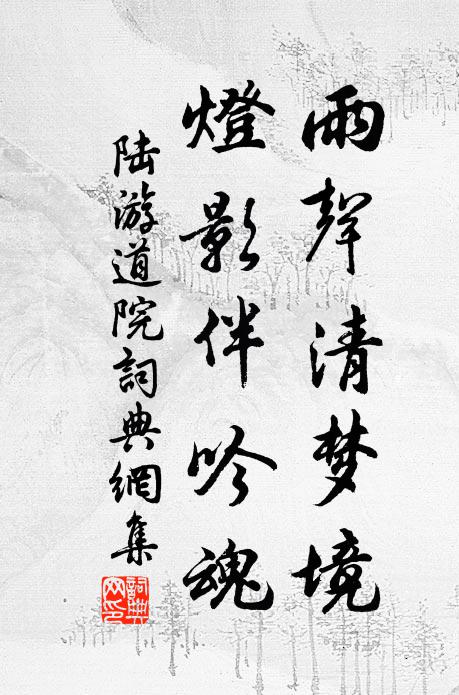 雨聲清梦境
燈影伴吟魂
陆游道院詞典網集
詞典